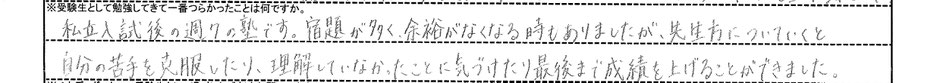 ※受験生として勉強してきて一番つらかったことは何ですか。
私立入試後の週7の塾です。宿題が多く、余裕がなくなる時もありましたが、先生方についていくと
自分の苦手を克服したり、理解していなかったことに気づけたり最後まで成績を上げることができました。